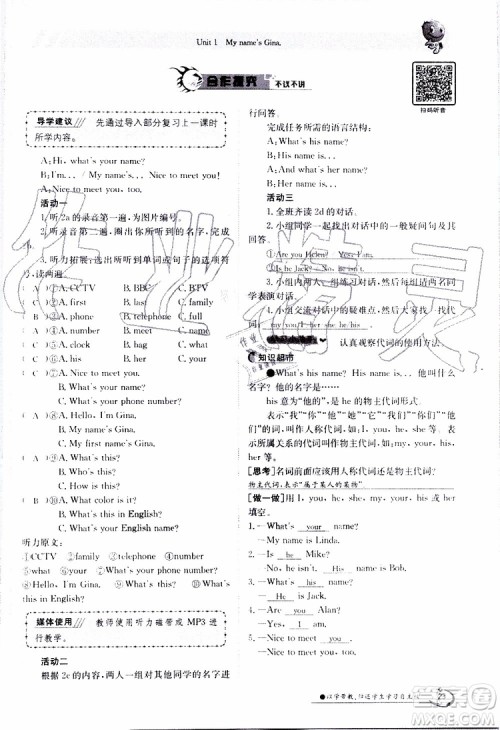 Unit 1 My name's Gina.
合作探究 不议不讲
扫码听音
导学建议 先通过导入部分复习上一课时
所学内容。
A:Hi, what's your name?
B:I'm... /My name is...
A:Nice to meet you, too.
活动一
1.听2a的录音第一遍,为图片编号。
2.听录音第二遍,圈出你听到的单词。
3.听力拓展:选出所听到的单词或句子的序号
(读两遍)。
( A )①A. CCTV B. BBC C. BTV
②A. first B. family C. father
③A. phone B. telephone C. number
④A. number B. name C. meet
⑤A. clock B. watch C. bag
⑥A. Nice to meet you.
B. What's your name?
C. What's your phone number?
( A )⑦A. Hello, I'm Gina.
B. My name is Gina.
C. My first name's Gina.
⑧A. What's this?
B. Who is this?
C. How is this?
( B )⑨A. What color is it?
B. What's this in English?
C. What's that in English?
听力原文:
①CCTV ②family ③telephone ④number
⑤watch ⑥What's your phone number?
⑦Hello, I'm Gina. ⑧What's this? ⑨What's this
in English?
媒体使用 教师使用听力磁带或 MP3 进
行教学。
活动二
根据 2c 的内容,两人一组对其他同学的名字进
行问答。
完成任务所需的语言结构:
A:What's his name?
B:His name is...
A:What's her name?
B:Her name is...
活动三
1.全班齐读 2d 的对话。
2.小组同学一起找出对话中的一般疑问句。
Are you Helen?
Is he Jack?
3.小组内两人一组练习对话,每组推选一对同
学表演对话。
4.小组交流对话中的疑难点,并总结对话中的
代词: my you I her she he his
认真观察代词的使用
知识超市
●What's his name? His name is... 他叫什
么名字?他的名字是……
his 意为"他的",是 he 的物主代词形式。
表示"我""你""他""她""我们""你们""他们"
等人称的代词叫人称代词,如I, you, he, she 等。表
示所属关系的代词叫物主代词,如my, your, his,
her 等。
[思考]名词前面应该用人称代词还是物主代词?
物主代词,表示"属于某人的某物"
[做一做]用I, you, he, she, my, your, his, her
填空。
1.—What's your name?
—My name is Linda.
2.—Is he Jim?
—No, he isn't. His name is Bob.
3.—What's his name?
—He is Jack.
4.—Are you Mary?
—Yes, I am.
5.—Nice to meet you.
—Nice to meet you, too.
23